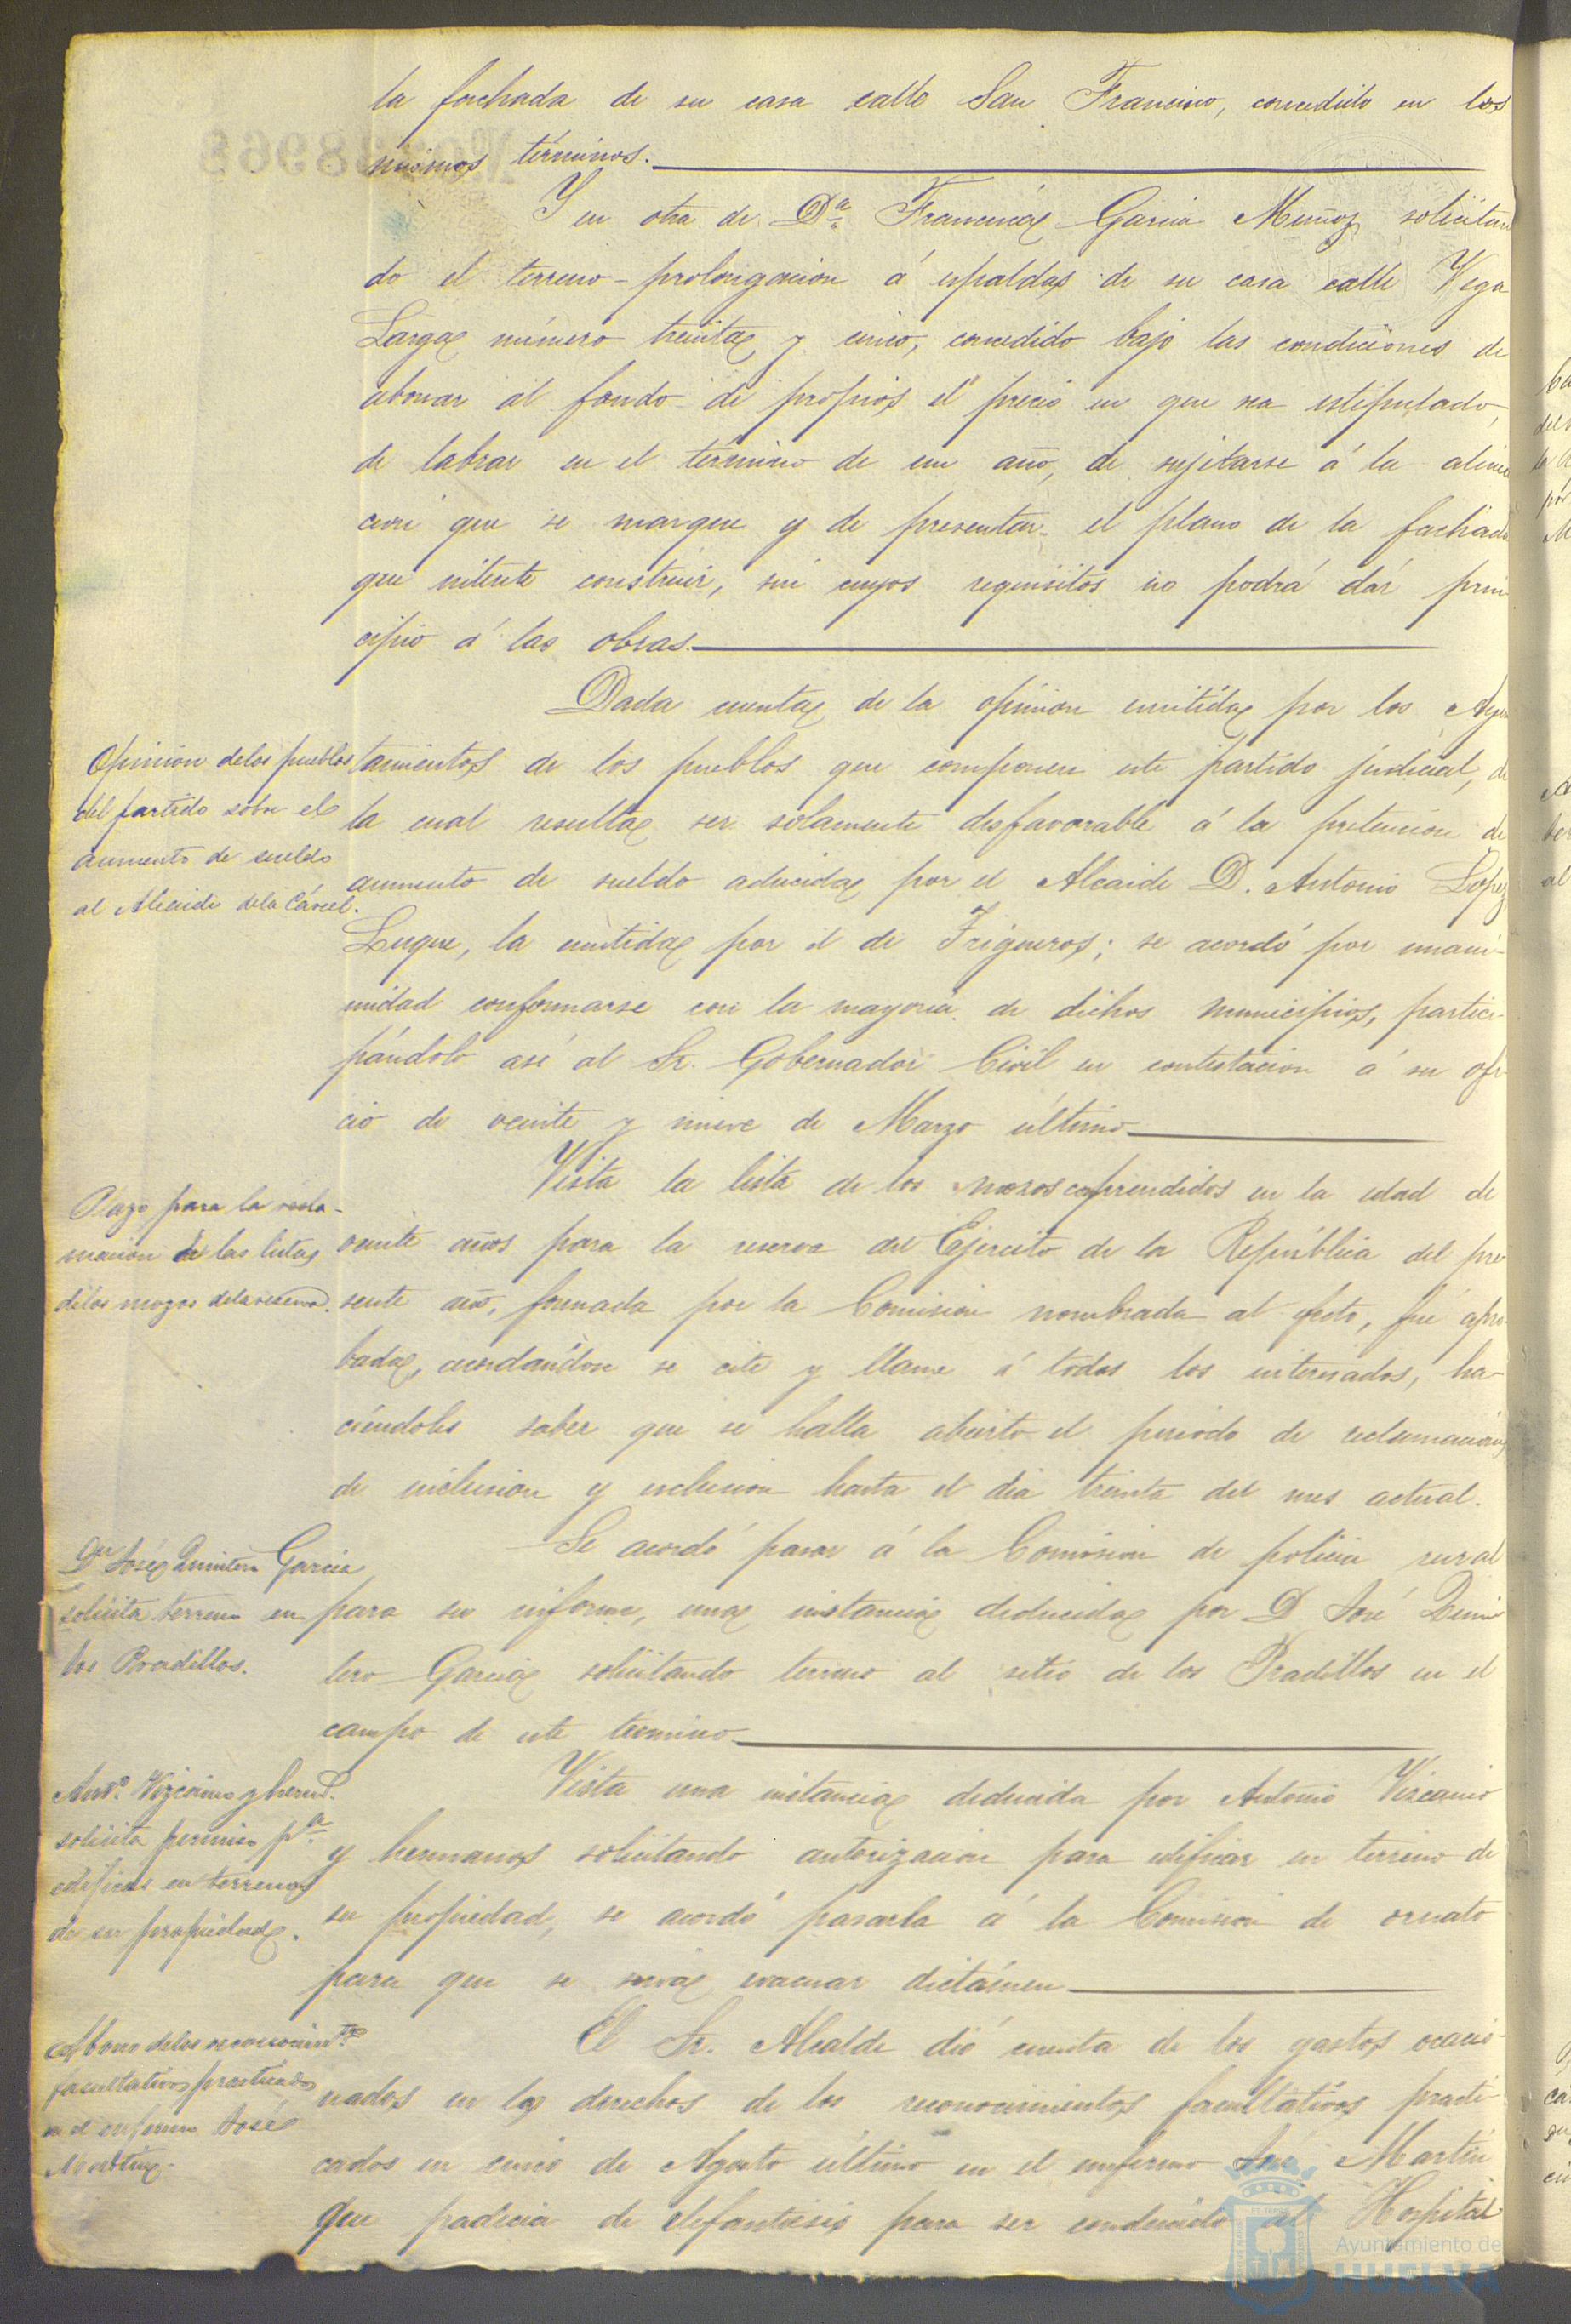 la fachada de su casa calle San Francisco, concedido en los
mismos términos.
Y en otra de Dª Francisca Garcia Muñoz solicitan
do el terreno-prolongacion á espaldas de su casa calle Vega
Larga número treinta y cinco, concedido bajo las condiciones de
abonar al fondo de propios el precio en que sea estipulado,
de labrar en el término de un año, de sujetarse á la alinea
cion que se marque y de presentar el plano de la fachada
que intente construir, sin cuyos requisitos no podrá dár prin
cipio á las obras.
Dada cuenta de la opinion emitida por los Ayun
Opinion de los pueblos
del partido sobre el
aumento de sueldo
al Alcaide de la Cárcel.
tamientos de los pueblos que componen este partido judicial, de
la cual resulta ser solamente desfavorable á la pretencion de
aumento de sueldo aducida por el Alcaide D. Antonio Lopez
Luque, la emitida por el de Trigueros; se acordó por unani-
midad conformarse con la mayoria de dichos municipios, partici-
pándolo asi al Sr. Gobernador Civil en contestacion á su ofi-
cio de veinte y nueve de Marzo último
Vista la lista de los mozos coprendidos en la edad de
Plazo para la recla-
macion de las listas
de los mozos de la reserva.
veinte años para la reserva del Ejercito de la República del pre
sente año, formada por la Comision nombrada al efecto, fué apro-
bada, acordandose se cite y llame á todos los interesados, ha-
ciéndoles saber que se halla abierto el periodo de reclamaciones
de inclusion y exclusion hasta el dia treinta del mes actual.
Se acordó pasar á la Comision de policia rural
Dn José Quintero Garcia
solicita terreno en
los Pradillos.
para su informe, una instancia deducida por D José Quin
tero Garcia solicitando terreno al sitio de los Pradillos en el
campo de este termino
Vista una instancia deducida por Antonio Vizcaino
Antº. Vizcaino y herms.
solicita permiso pª
edificar en terrenos
de su propiedad.
y hermanos solicitando autorizacion para edificar en terreno de
su propiedad, se acordó pasarla á la Comision de ornato
para que se sirva evacuar dictámen
El Sr. Alcalde dió cuenta de los gastos ocacio-
Abono de los reconocimtos
facultativos practicados
en el enfermo José
Martin.
nados en los derechos de los reconocimientos facultativos practi-
cados en cinco de Agosto último en el enfermo José Martin
que padecia de elefantiasis para ser conducido al Hospital
Ayuntamiento de
HUELVA